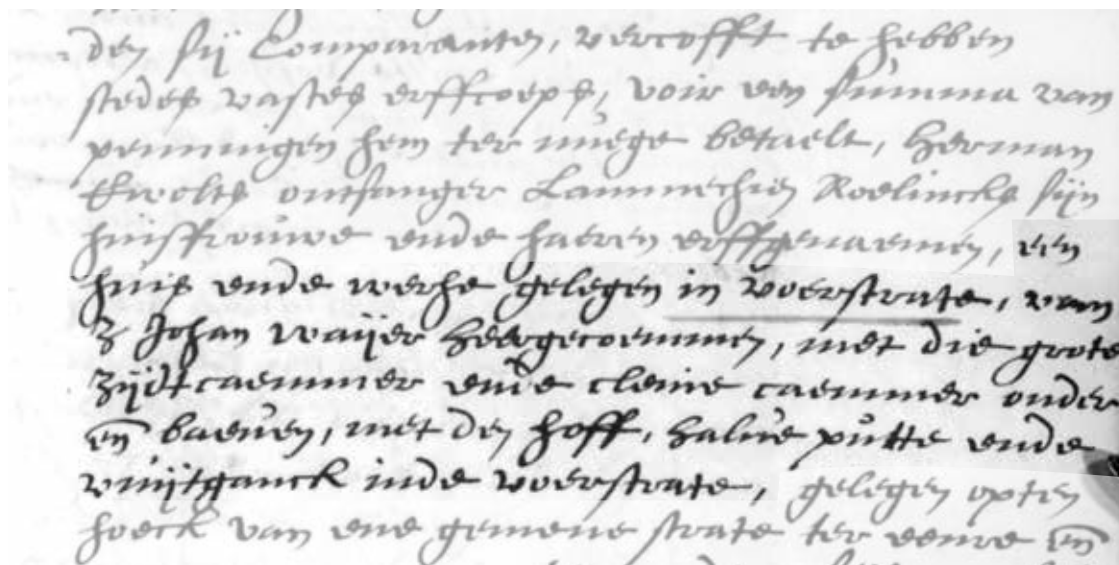 den sij Comparanten, vercofft te hebben
stedes vastes erffcoeps, voir een summa van
penningen hem ter nuege betaelt, Herman
Ewolts ontfanger Lammechien Roelincks sijn
huisfrouwe ende haeren erffgenaemen, een
huis ende werhe gelegen in Voerstrate, van
Z Johan Waijer heergecoemmen, met die grote
Zijdtcaemmer ende cleine caemmer onder
en baeven, met den hoff, halve putte ende
vuijtganck inde Voerstrate, gelegen opten
hoeck van ene gemene strate ter eenre en